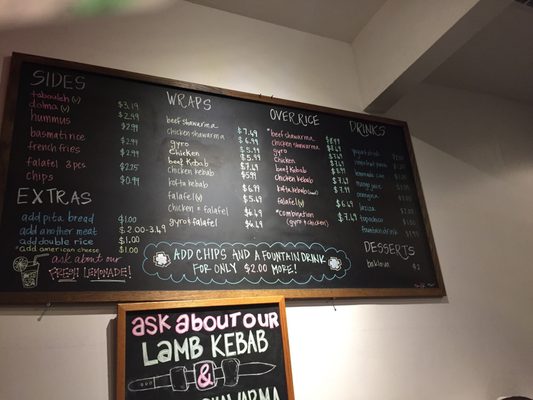 SIDES
tabouleh (v) $3.19
dolma (v) $2.99
hummus $2.99
basmati rice $2.99
french fries $2.99
falafel 3 pcs. $2.99
chips $0.99
EXTRAS
add pita bread $1.00
add another meat $2.00-3.69
add double rice $1.00
*add american cheese $1.00
ask about our
FRESH LEMONADE!
WRAPS
beef shawarma $7.69
chicken shawarma $6.99
gyro $5.99
chicken $5.99
beef kebab $7.69
chicken kebab $5.99
kofta kebab $6.99
falafel (v) $5.49
chicken + falafel $6.69
gyro + falafel $6.69
OVER RICE
*beef shawarma
chicken shawarma
gyro
chicken
beef kebab
chicken kebab
kofta kebab
falafel (v)
*combination $7.69
(gyro + chicken)
DRINKS
yogurt drink
lemonade can
mango juice
orangina
laziza
fountain drink
DESSERTS
baklava $2
ADD CHIPS AND A FOUNTAIN DRINK
FOR ONLY $2.00 MORE!
ASK ABOUT OUR
LAMB KEBAB
&